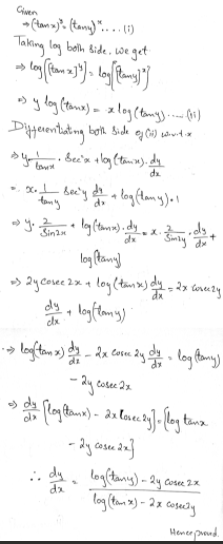 Given
⇒ (tanx)^y = (tany)^x .... (i)
Taking log both side, we get
⇒ log[(tanx)^y] = log[(tany)^x]
⇒ y log(tanx) = x log(tany) .... (ii)
Differentiating both side of (ii) w.r.t. x
⇒ y. 1/tanx . sec²x + log(tanx). dy/dx
= x. 1/tany sec²y dy/dx + log(tany).1
⇒ y. 2/Sin2x + log(tanx). dy/dx = x. 2/Sin2y . dy/dx +
log(tany)
⇒ 2y cosec 2x + log(tanx) dy/dx = 2x cosec 2y
dy/dx + log(tany)
⇒ log(tanx) dy/dx - 2x cosec 2y dy/dx = log(tany)
- 2y cosec 2x
⇒ dy/dx [log(tanx) - 2x cosec 2y] = [log tanx
- 2y cosec 2x]
∴ dy/dx = log(tany) - 2y cosec 2x / log(tanx) - 2x cosec 2y
Hence proved